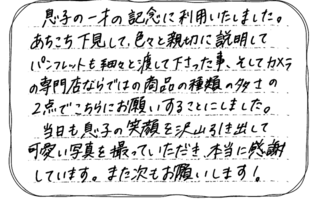 息子の一才の記念に利用いたしました。
あちこち下見して、色々と親切に説明して
パンフレットも細々と渡して下さった事、そしてカメラ
の専門店ならではの商品の種類の多さの
2点でこちらにお願いすることにしました。
当日も息子の笑顔を沢山引き出して
可愛い写真を撮っていただき、本当に感謝
しています。また次もお願いします！